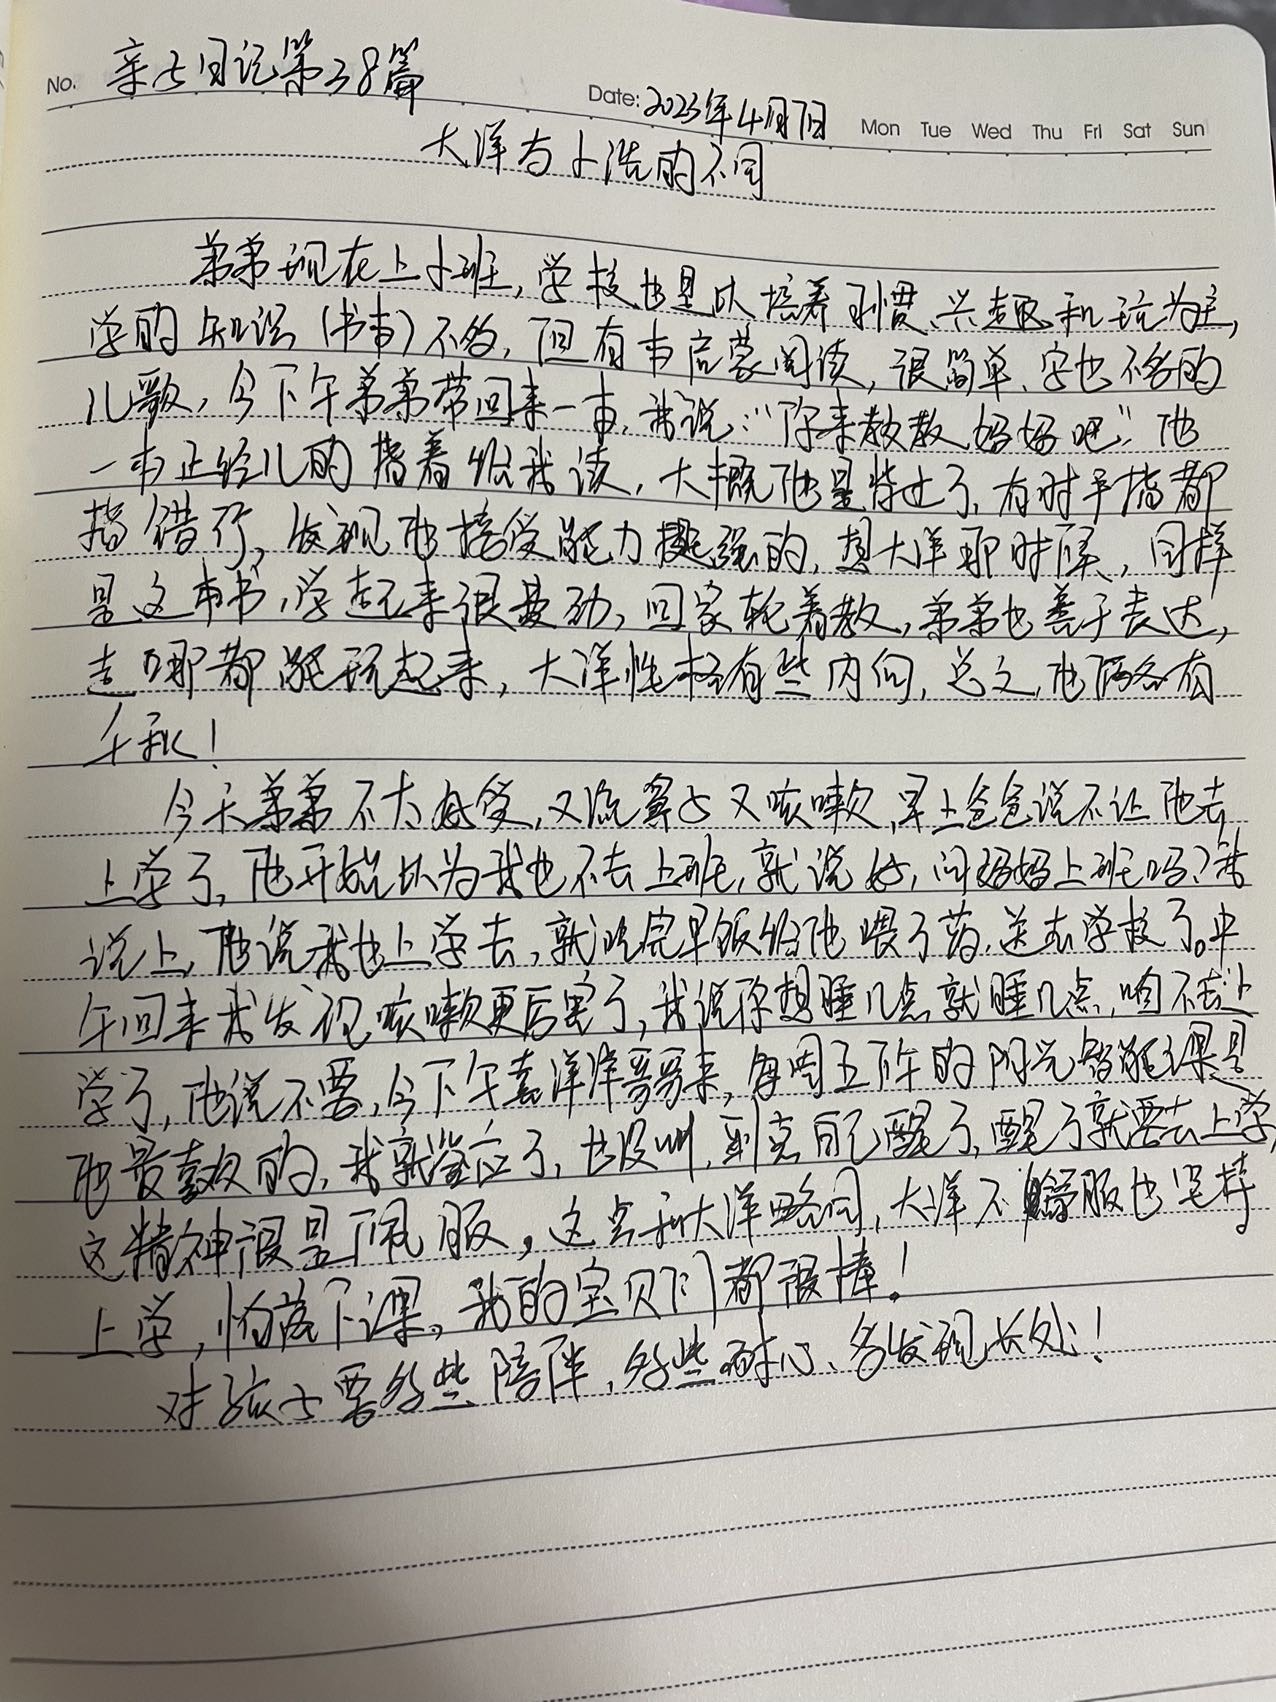 No. 亲子日记第38篇
Date: 2023年4月7日 Mon Tue Wed Thu Fri Sat Sun
大洋与小浩的不同
弟弟现在上小班,学校也是以培养习惯、兴趣和玩为主,
学的知识(书本)不多,但有本启蒙阅读,很简单、字也不多的
儿歌,今下午弟弟带回来一本,我说:“你来教教妈妈吧”他
一本正经儿的指着给我读,大概他是特过了,有时手指都
指错行,发现他接受能力挺强的,想大洋那时候,同样
是这本书,学起来很费劲,回家轮着教,弟弟也善于表达,
走哪都能玩起来,大洋性格有些内向,总之,他俩各有
千秋!
今天弟弟不大好受,又流鼻子又咳嗽,早上爸爸说不让他去
上学了,他开始以为我也不去上班,就说好,问妈妈上班吗?我
说上,他说我也上学去,就吃完早饭给他喂了药,送去学校了。中
午回来我发现咳嗽更厉害了,我说你想睡几点就睡几点,咱不去上
学了,他说不要,今下午喜洋洋哥哥来,每周五下午的阳光智能课是
他最喜欢的,我就答应了,也没叫,到点自己醒了,醒了就要去上学,
这精神很是佩服,这点和大洋略同,大洋不舒服也坚持
上学,怕落下课,我的宝贝们都很棒!
对孩子要多些陪伴,多些耐心、多发现长处!